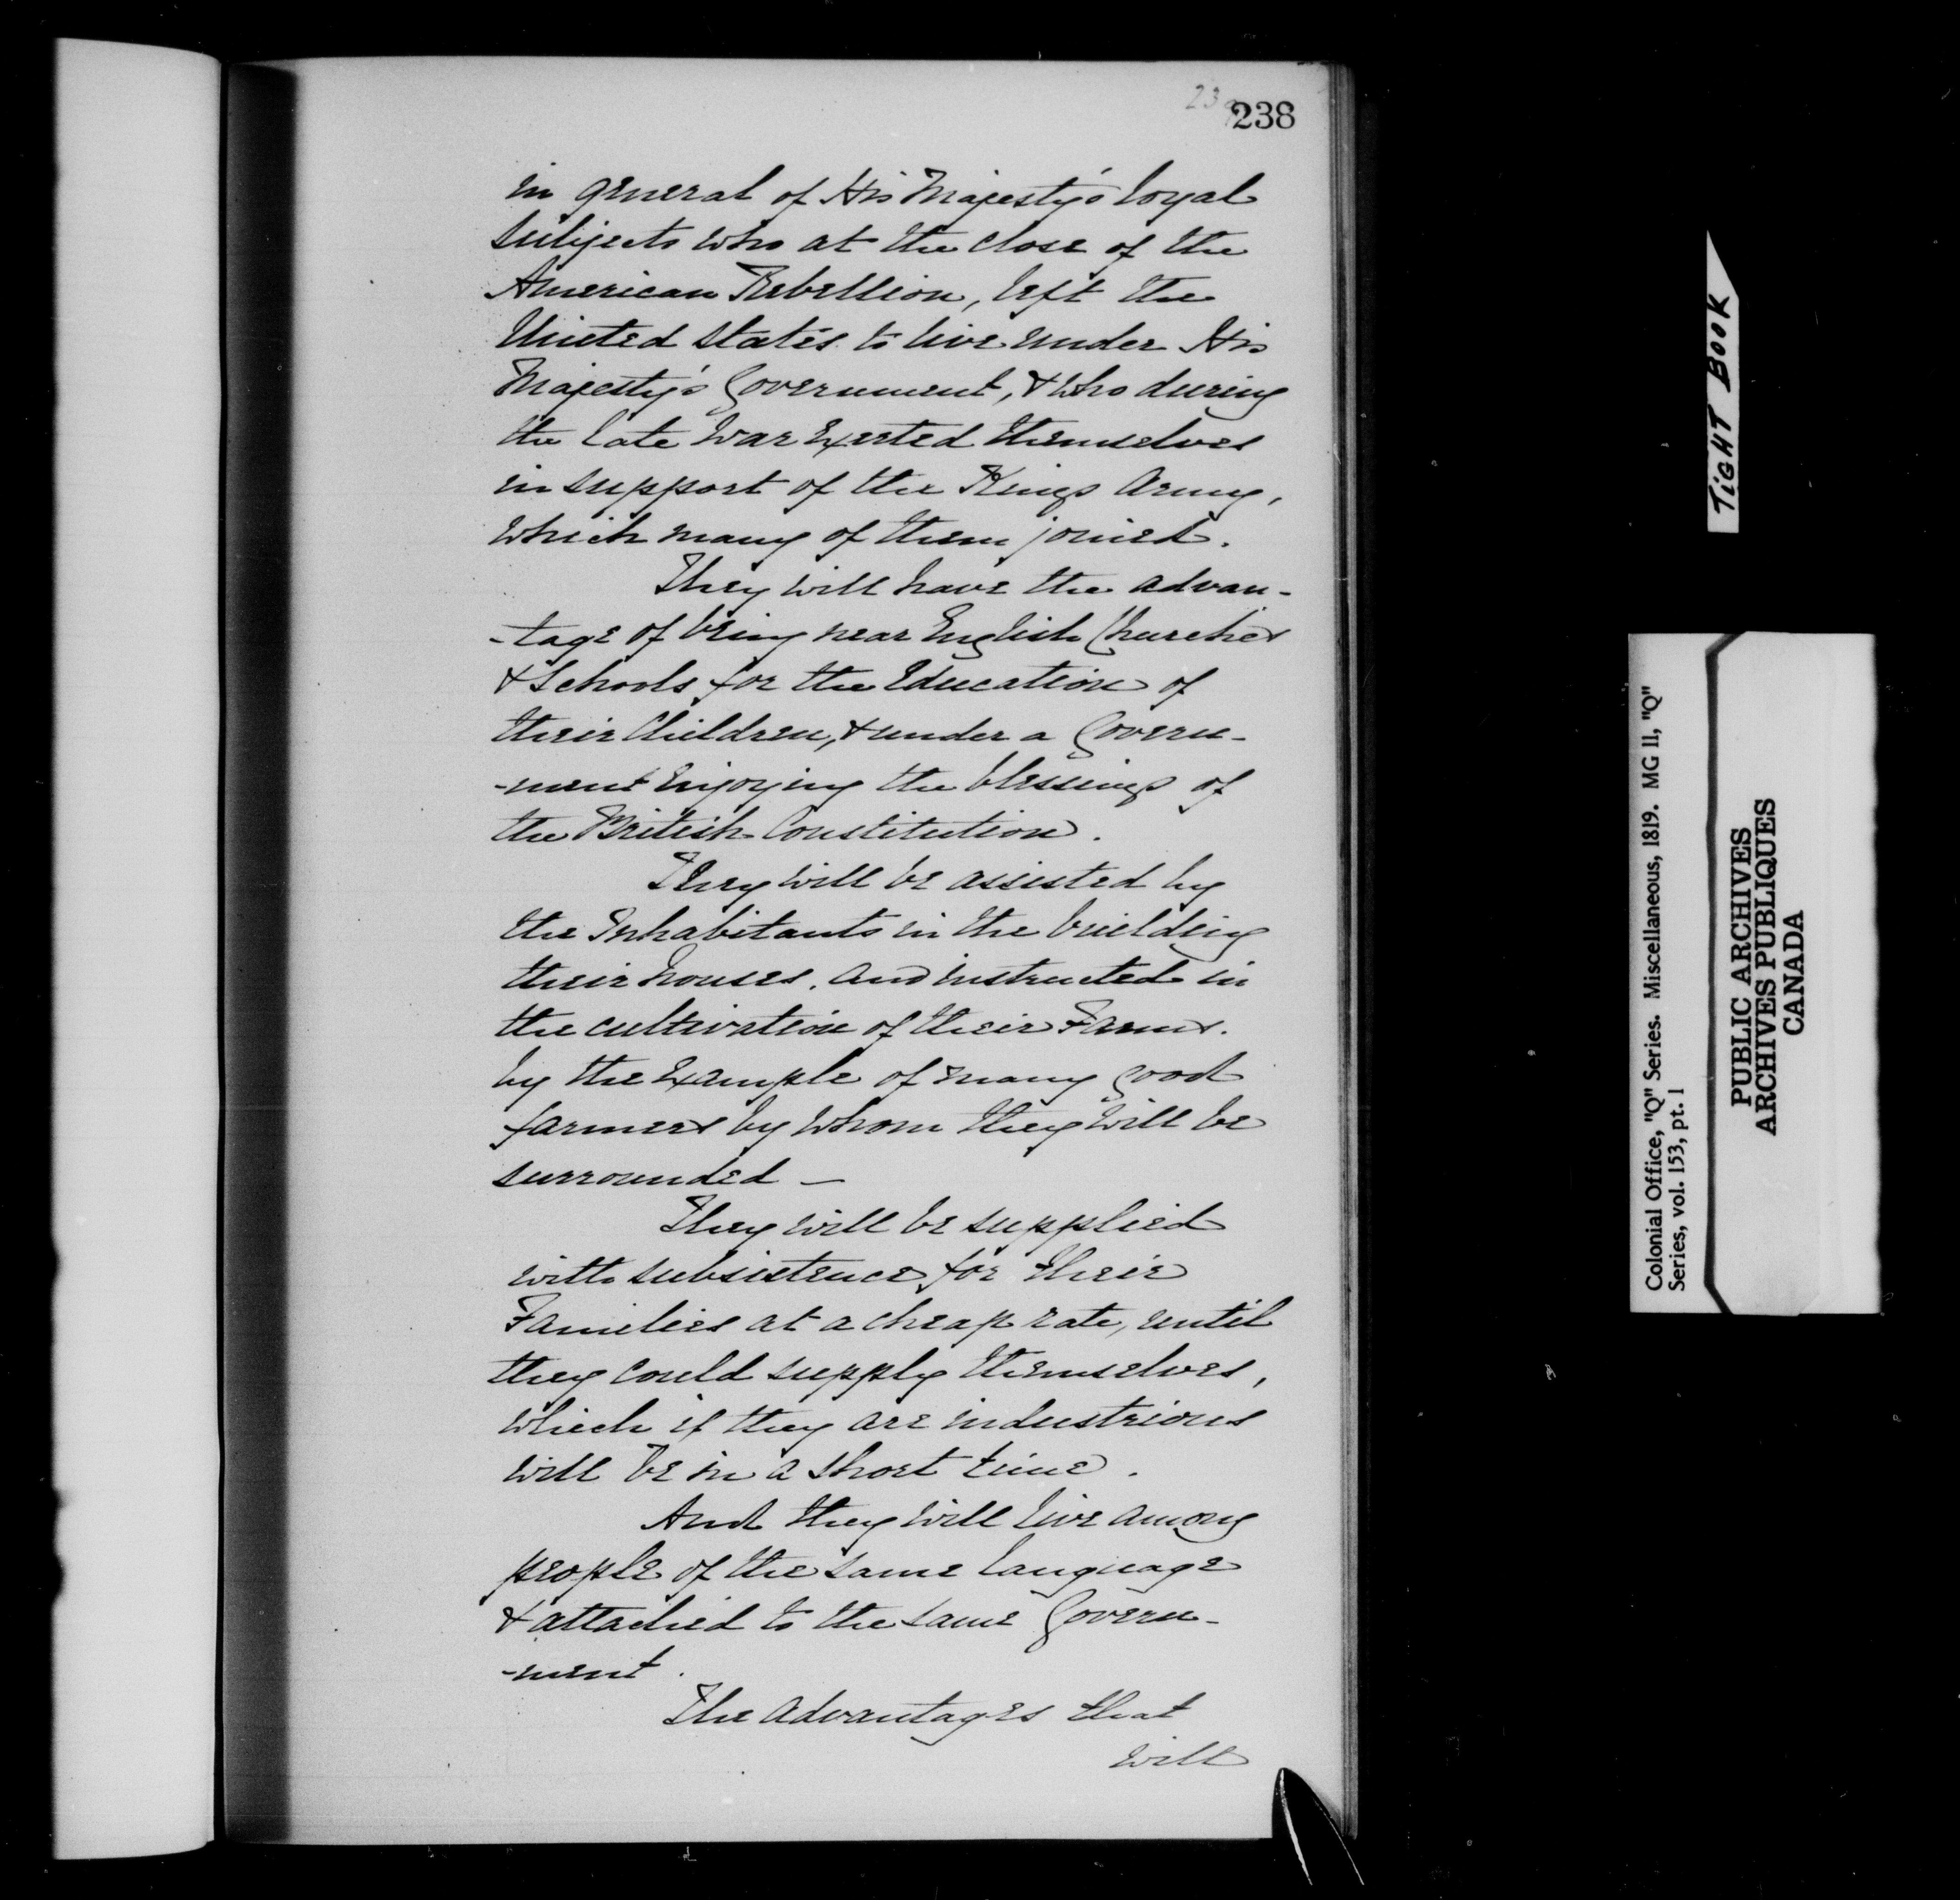 238
in general of His Majesty's loyal
subjects who at the close of the
American Rebellion, left the
United States to live under His
Majesty's Government, & who during
the late War exerted themselves
in support of the Kings Army,
which many of them joined.
They will have the advan-
-tage of being near English Churches
& Schools for the Education of
their Children, & under a Govern-
-ment enjoying the blessings of
the British Constitution.
They will be assisted by
the Inhabitants in the building
their houses, and instructed in
the cultivation of their Farms.
by the Example of many good
farmers by whom they will be
surrounded —
They will be supplied
with subsistence for their
Families at a cheap rate, until
they could supply themselves,
which if they are industrious
will be in a short time.
And they will live among
people of the same language
& attached to the same Govern-
-ment.
The advantages that
will
TIGHT BOOK
Colonial Office, "Q" Series. Miscellaneous, 1819. MG 11, "Q"
Series, vol. 153, pt. 1
PUBLIC ARCHIVES
ARCHIVES PUBLIQUES
CANADA